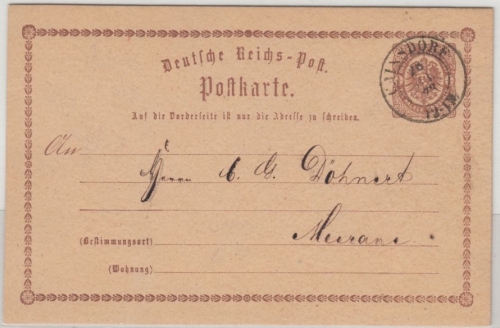 Deutsche Reichs-Post.
Postkarte.
CAINSDORF
Auf die Vorderseite ist nur die Adresse zu schreiben.
An
Herrn C. G. Döhnert
(Bestimmungsort) Meerane
(Wohnung)